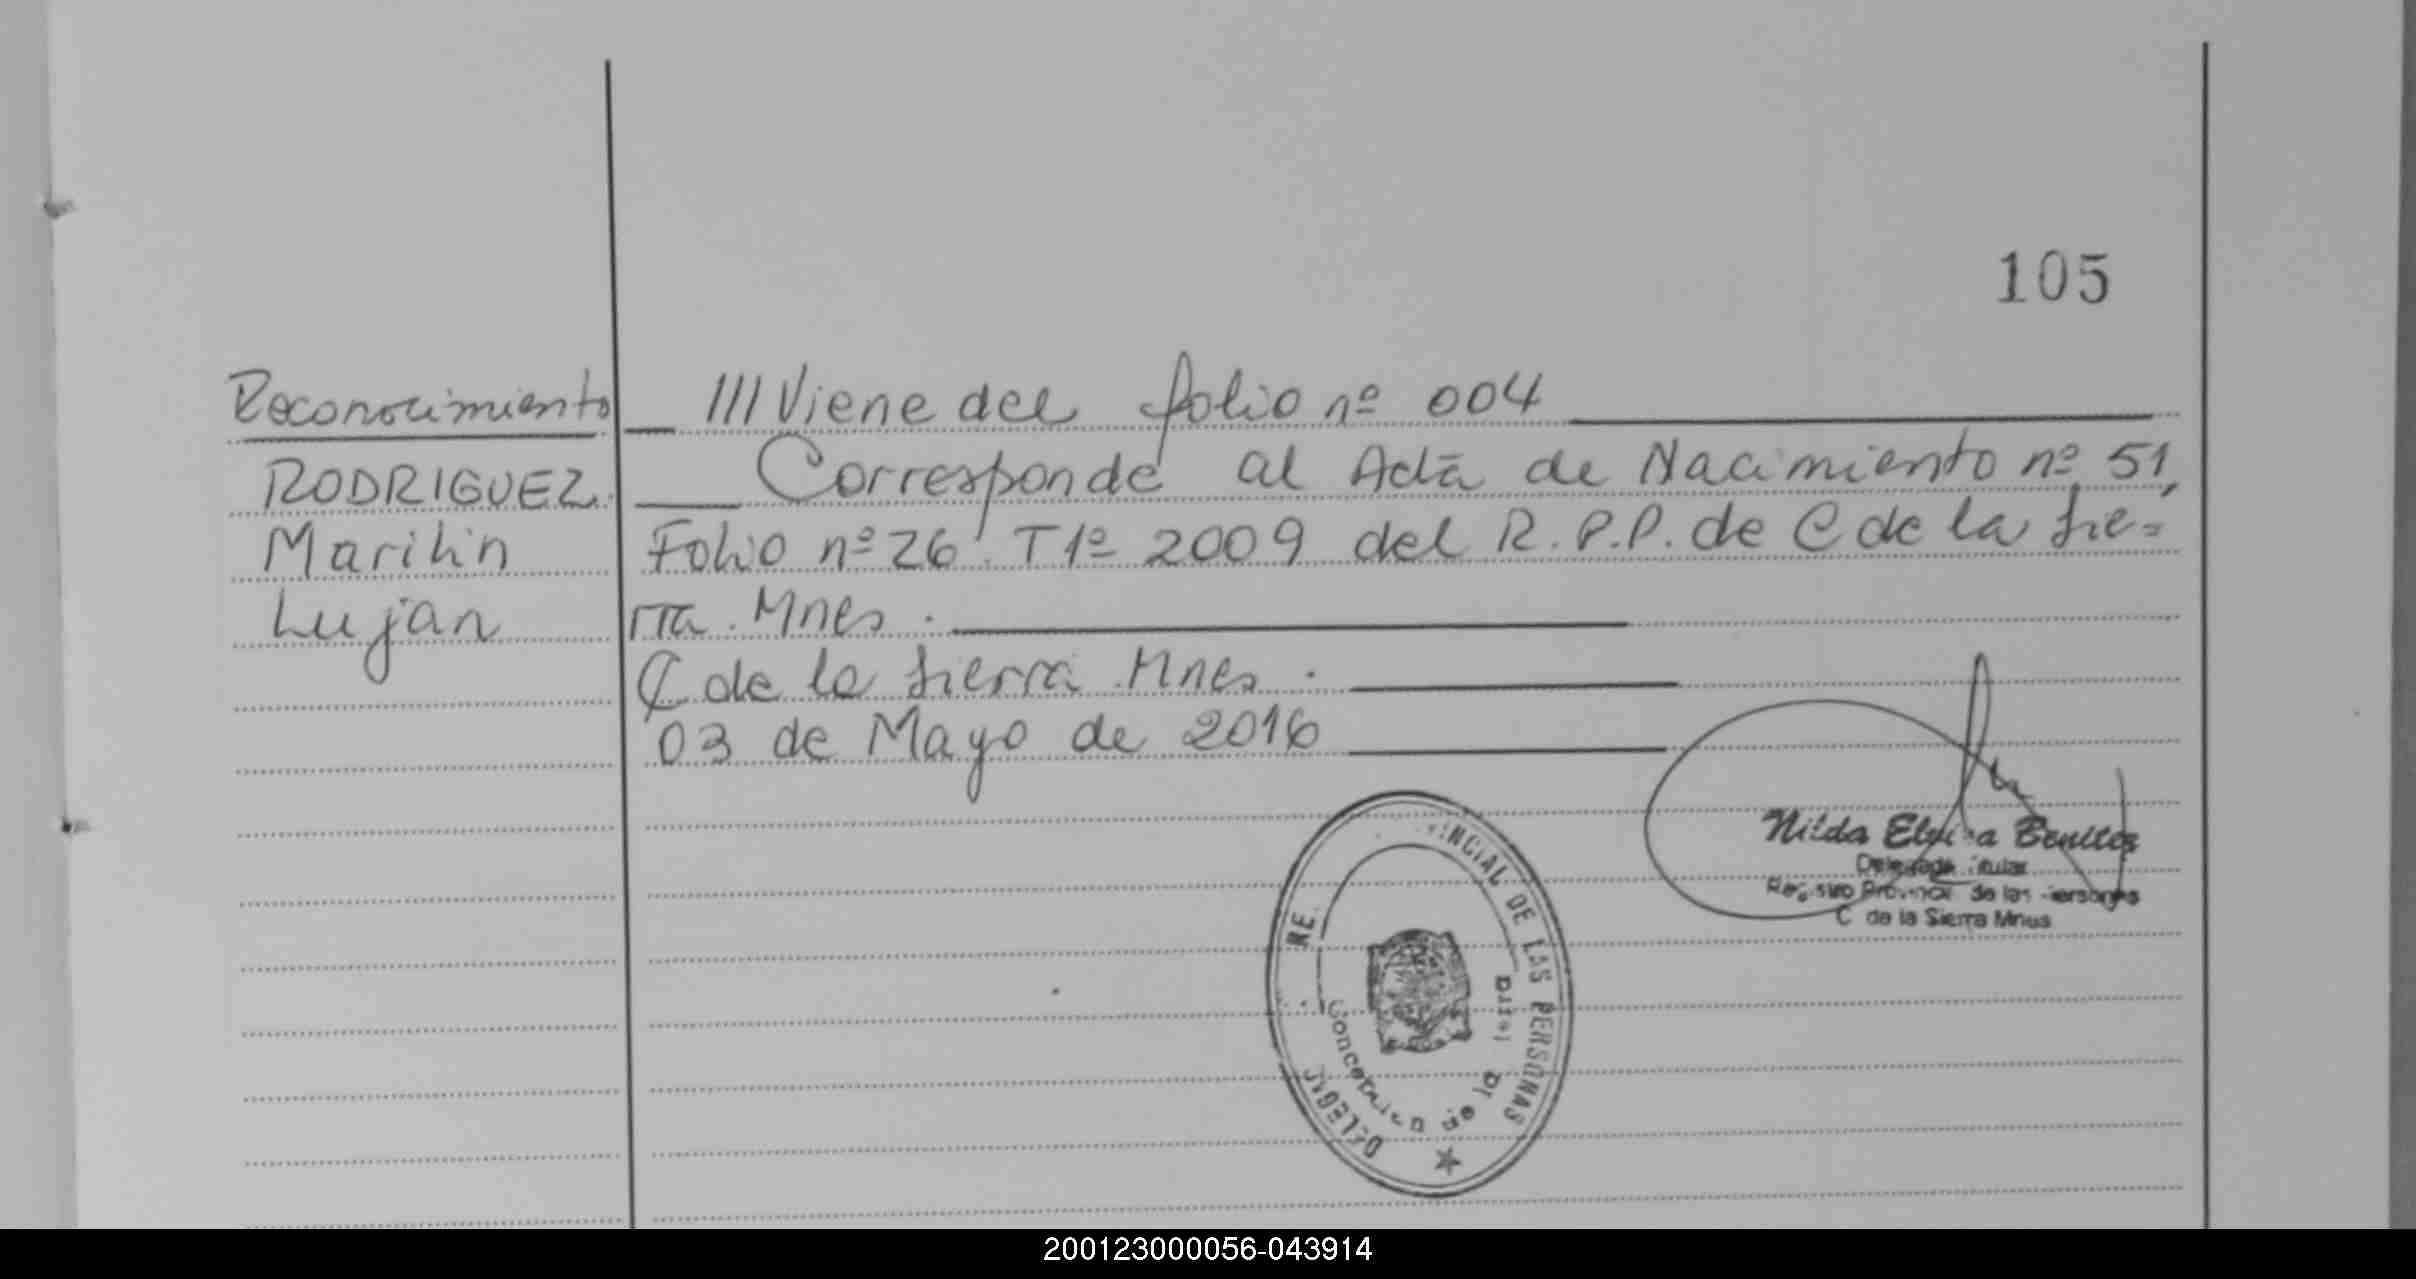 105
Reconocimiento
RODRIGUEZ
Marilin
Lujan
III Viene del folio nº 004
Corresponde al Acta de Nacimiento nº 51,
Folio nº 26 T 1º 2009 del R.P.P. de C de la Sie=
rra Mnes.
C de la Sierra Mnes.
03 de Mayo de 2016
Nilda Elvira Benitez
Delegada Titular
Registro Provincial de las Personas
C de la Sierra Mnes
INCIAL DE LAS PERSONAS
DELEG
Concepcion de
200123000056-043914